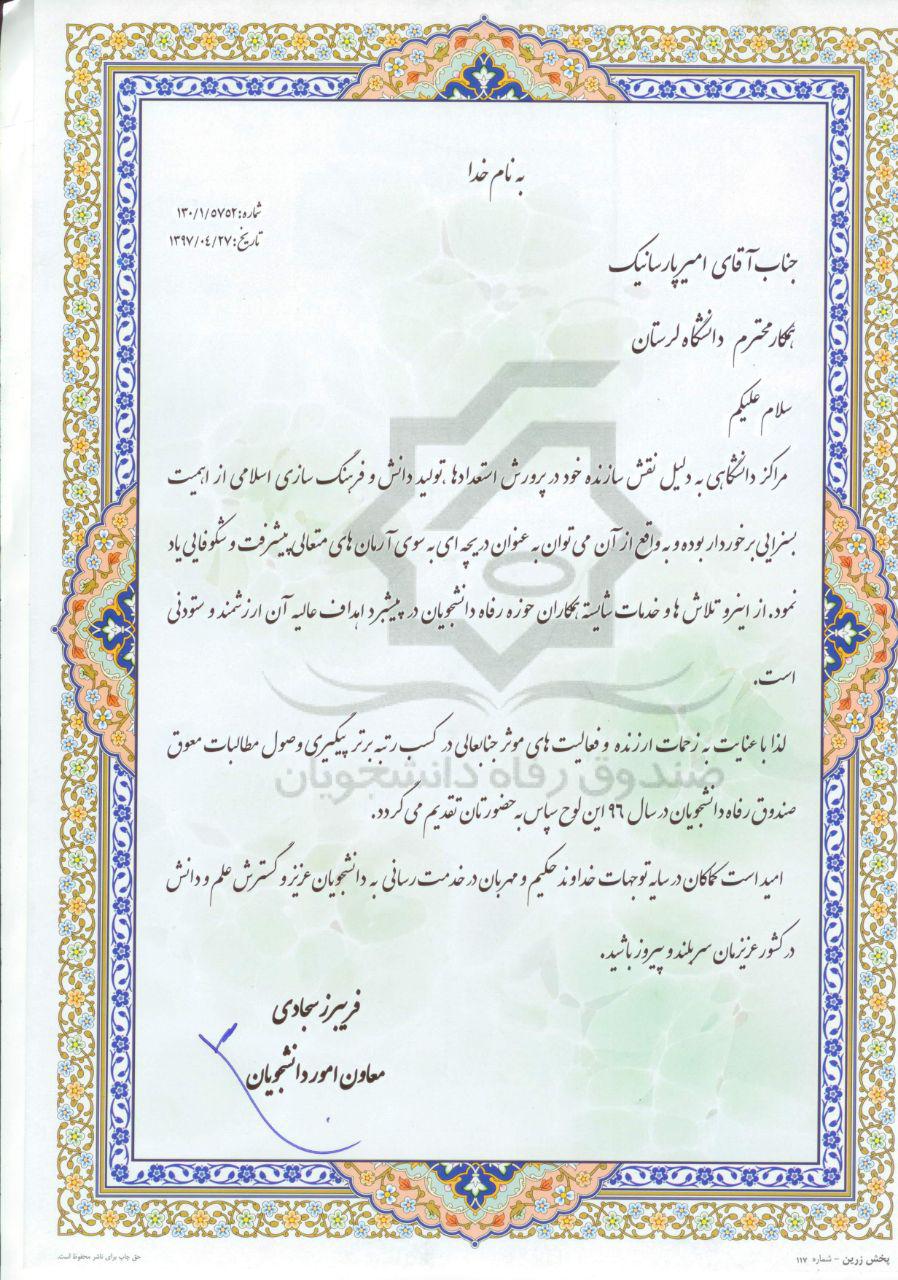 به نام خدا
شماره: ۱۳۰/۱/۵۷۵۲
تاریخ: ۱۳۹۷/۰۴/۲۷
جناب آقای امیر پارسانیک
همکار محترم دانشگاه لرستان
سلام علیکم
مراکز دانشگاهی به دلیل نقش سازنده خود در پرورش استعدادها، تولید دانش و فرهنگ سازی اسلامی از اهمیت
بسزایی برخوردار بوده و به واقع از آن می توان به عنوان دریچه ای به سوی آرمان های متعالی پیشرفت و شکوفایی یاد
نمود. از اینرو تلاش ها و خدمات شایسته همکاران حوزه رفاه دانشجویان در پیشبرد اهداف عالیه آن ارزشمند و ستودنی
است.
لذا با عنایت به زحمات ارزنده و فعالیت های موثر جنابعالی در کسب رتبه برتر پیگیری وصول مطالبات معوق
صندوق رفاه دانشجویان در سال ۹۶ این لوح سپاس به حضورتان تقدیم می گردد.
امید است کماکان در سایه توجهات خداوند حکیم و مهربان در خدمت رسانی به دانشجویان عزیز و گسترش علم و دانش
در کشور عزیزمان سربلند و پیروز باشید.
فریبرز سجادی
معاون امور دانشجویان
صندوق رفاه دانشجویان
پخش زرین - شماره ۱۱۷
حق چاپ برای ناشر محفوظ است.